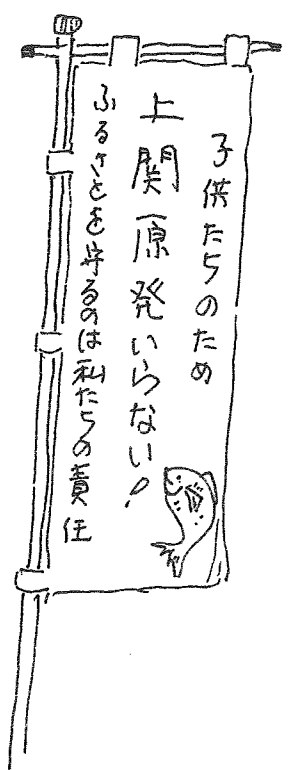 子供たちのため
上関原発いらない!
ふるさとを守るのは私たちの責任